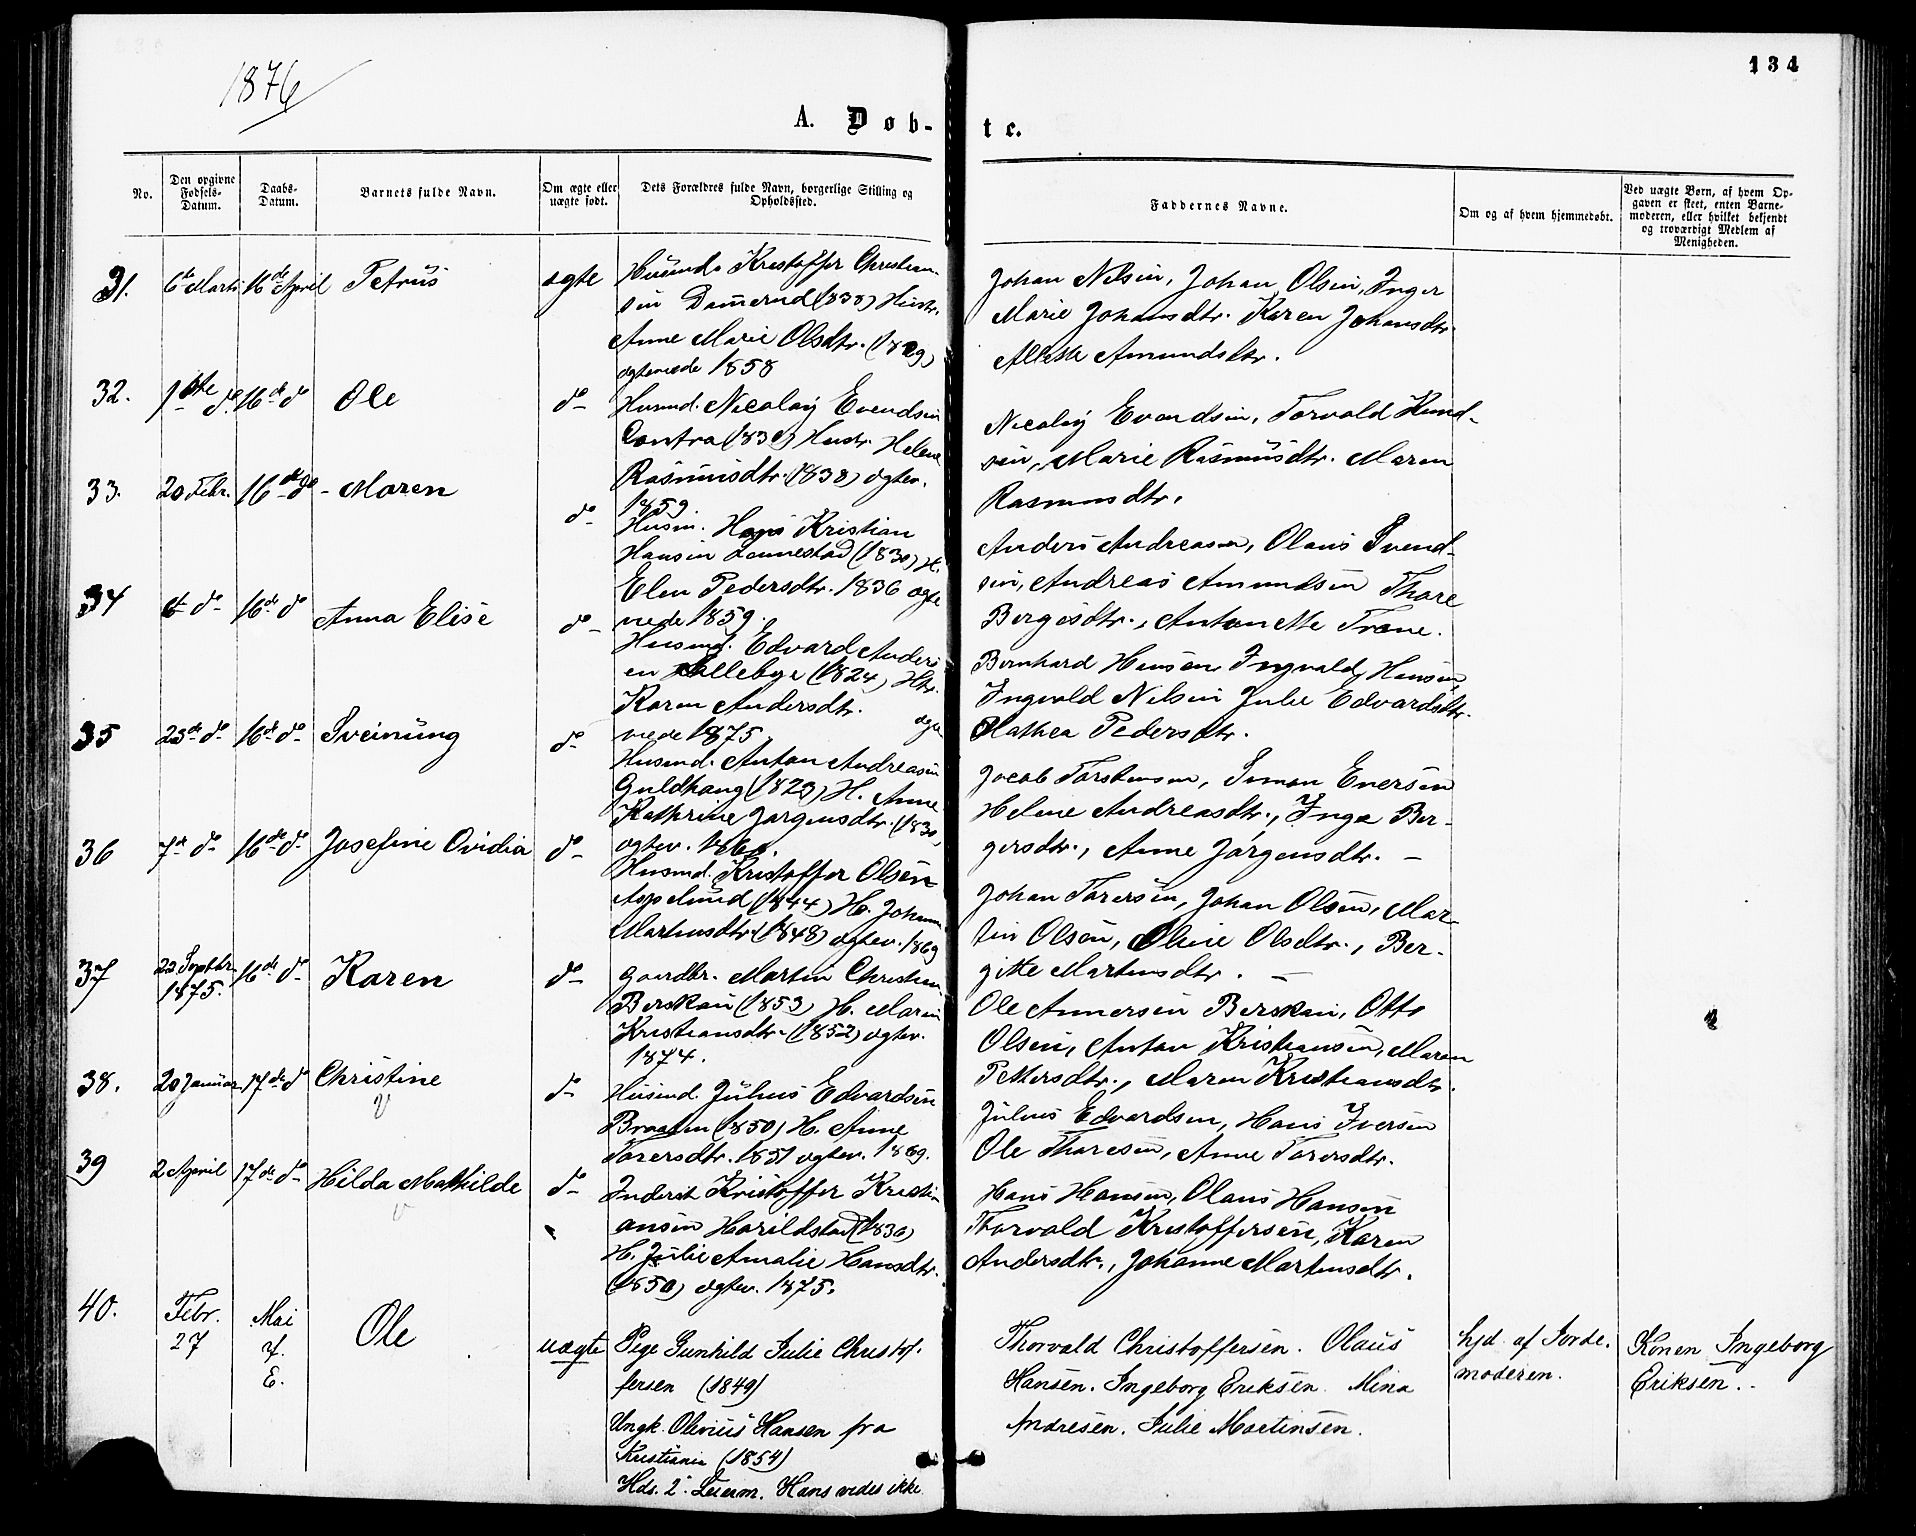 1876
134
A. Døb-
te.
No.
Den opgivne Fødsels-Datum.
Daabs-Datum.
Barnets fulde Navn.
Om ægte eller uægte født.
Dets Forældres fulde Navn, borgerlige Stilling og Opholdssted.
Faddernes Navne.
Om og af hvem hjemmedøbt.
Ved uægte Børn, af hvem Op-
gaven er skeet, enten Barne-
moderen, eller hvilket bekjendt
og troværdigt Medlem af
Menigheden.
31. 6te Marts 16de April Petrus ægte
Husmd. Kristoffer Christian-
sen (1838) Hustr.
Anne Marie Olsdtr.
ægteviede 1858
Johan Nilsen, Johan Olsen, Inger
Marie Johansdtr. Karen Johansdtr.
Amundsdtr.
32. do 16de do Ole do
Husmd. Nicolay Evendsen
Hustr. Helene
Rasmusdtr. (1838) ægtev.
1859.
Nicolay Evendsen, Torvald Knud-
sen, Marie Rasmusdtr. Maren
Rasmusdtr.
33. 20 Febr. 16de do Maren do
Husm. Hans Kristian
Hansen Lannestad (1830) H.
Elen Pedersdtr. 1836 ægte
viede 1859.
Anders Andreasen, Olaus Svend-
sen, Andreas Amundsen Thore
Bergesdtr., Antonette Trane.
34 do 16de do Anna Elise do
Husmd. Edvard Anders
en Sollebye (1824) Htr.
Karen Andersdtr. ægte
viede 1875.
Bernhard Hansen Ingvald Hansen,
Ingvald Nilsen Julie Edvardsdtr.
Mathea Pedersdtr.
35 23de do 16de do Sveinung do
Husmd. Anton Andreasen
Guldhaug (1823) H. Anne
Kathrine Jørgensdtr. (1830,
ægtev.
Jacob Torstensen, Simon Enersen
Helene Andreasdtr., Inga Ber-
gersdtr., Anne Jørgensdtr. —
36 7de do 16de do Josefine Ovidia do
Husmd. Kristoffer Olsen
Aspelund (1844) H. Johanne
Martinsdtr. (1848) ægtev. 1869
Johan Torersen, Johan Olsen, Mar-
tin Olsen, Oline Olsdtr., Ber-
gitte Martinsdtr. —
37 Septbr. 1875. 16de do Karen do
Gaardbr. Martin Christian
Berskau (1853) H. Maren
Kristiansdtr. (1852) ægtev.
1874.
Ole Annersen Berskau, Otto
Olsen, Anton Kristiansen, Maren
Pettersdtr., Maren Kristiansdtr.
38. 20 Januar 17de do Christine do
V
Husmd. Julius Edvardsen
Braaten (1850) H. Anne
Torersdtr. 1851 ægtev. 1869.
Julius Edvardsen, Hans Iversen
Ole Thoresen, Anne Torersdtr.
39 2 April 17de do Hilda Mathilde do
V
Inderst Kristoffer Kristi-
ansen Harildstad (1836)
H. Julie Amalie Hansdtr.
(1850) ægtev. 1875.
Hans Hansen, Olaus Hansen
Thorvald Kristoffersen, Karen
Andersdtr., Johanne Martinsdtr.
40. Febr. 27 Mai 7. E. Ole uægte
Pige Gunhild Julie Christof-
fersen (1849)
Ungk. Olivius Hansen fra
Kristiania (1854)
Hds. 2. Leierm. Hans vides ikke
Thorvald Christoffersen. Olaus
Hansen. Ingeborg Eriksen. Mina
Andresen. Julie Martinsen.
hjd. af Jorde-
moderen.
Konen Ingeborg
Eriksen.